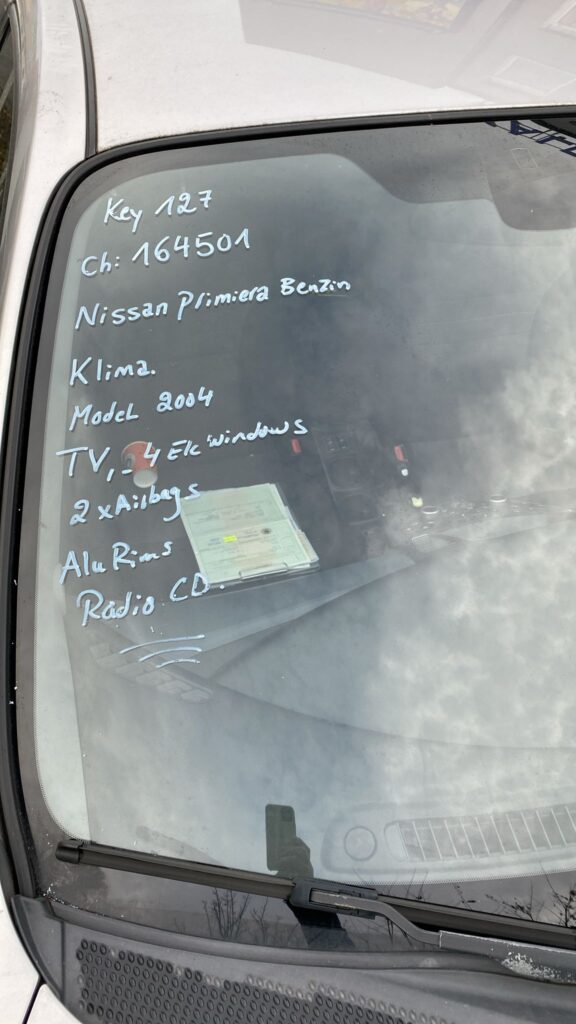 Key 127
Ch: 164501
Nissan Primiera Benzin
Klima.
Model 2004
TV, - 4 Ek windows
2 x Airbags
Alu Rims
Radio CD.